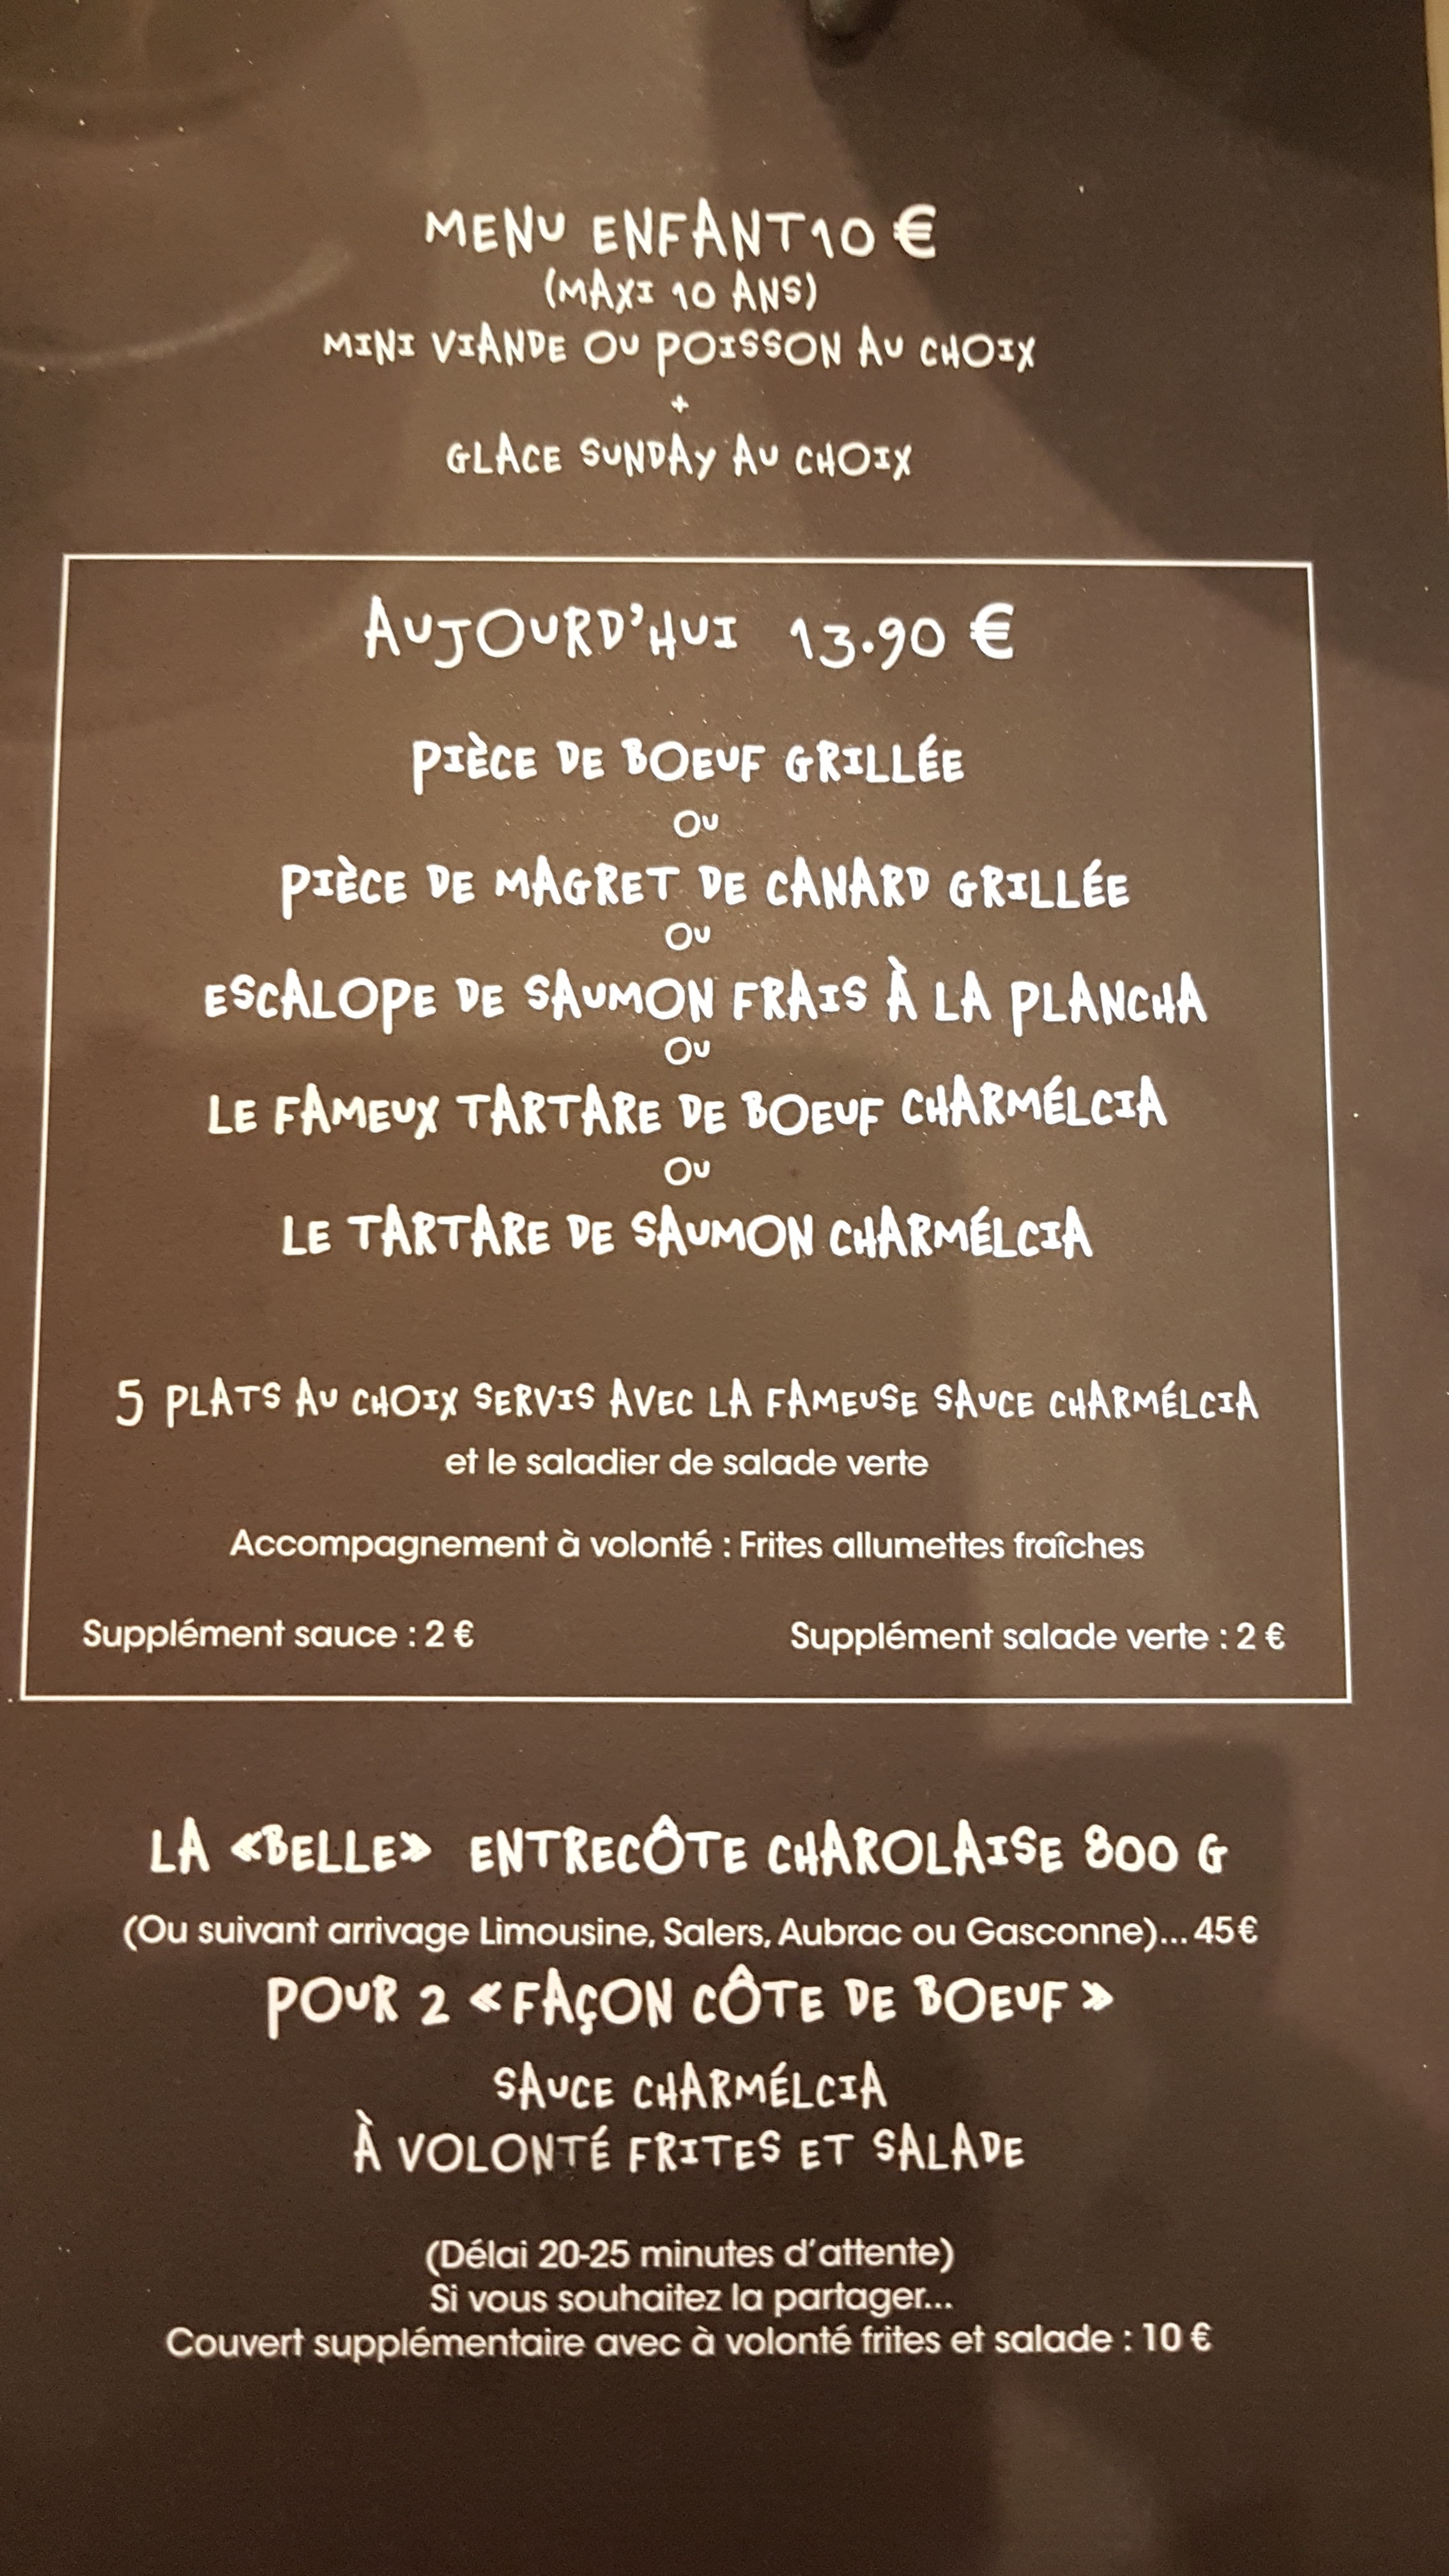 MENU ENFANT 10 €
(MAXI 10 ANS)
MINI VIANDE OU POISSON AU CHOIX
+
GLACE SUNDAY AU CHOIX
AUJOURD'HUI 13.90 €
PIÈCE DE BOEUF GRILLÉE
OU
PIÈCE DE MAGRET DE CANARD GRILLÉE
OU
ESCALOPE DE SAUMON FRAIS À LA PLANCHA
OU
LE FAMEUX TARTARE DE BOEUF CHARMÉLCIA
OU
LE TARTARE DE SAUMON CHARMÉLCIA
5 PLATS AU CHOIX SERVIS AVEC LA FAMEUSE SAUCE CHARMÉLCIA
et le saladier de salade verte
Accompagnement à volonté : Frites allumettes fraîches
Supplément sauce : 2 € Supplément salade verte : 2 €
LA «BELLE» ENTRECÔTE CHAROLAISE 800 G
(Ou suivant arrivage Limousine, Salers, Aubrac ou Gasconne)... 45€
POUR 2 « FAÇON CÔTE DE BOEUF »
SAUCE CHARMÉLCIA
À VOLONTÉ FRITES ET SALADE
(Délai 20-25 minutes d'attente)
Si vous souhaitez la partager...
Couvert supplémentaire avec à volonté frites et salade : 10 €